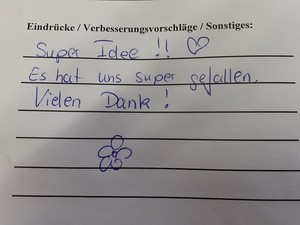 Eindrücke / Verbesserungsvorschläge / Sonstiges:
Super Idee !! ♡
Es hat uns super gefallen.
Vielen Dank !